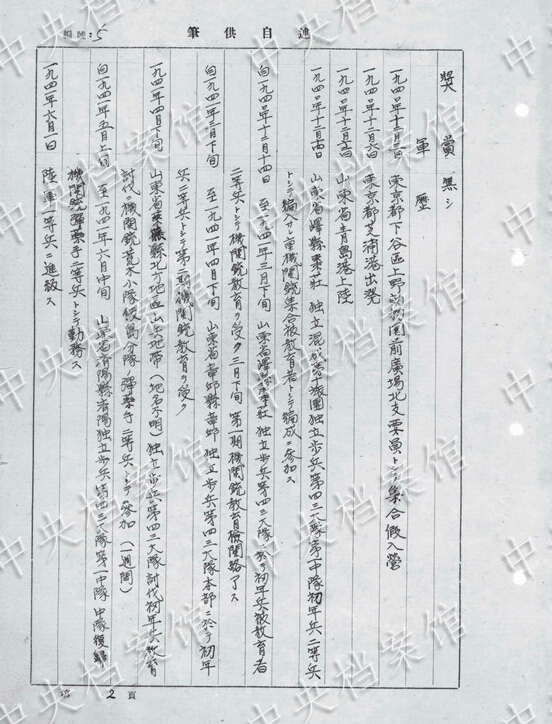 編號:5
筆供自述
獎賞無シ
軍歷
一九四〇年十二月三日 東京都下谷區上野 前廣場北支要員トシテ集合假入營
一九四〇年十二月六日 東京都芝浦港出発
一九四〇年十二月 日 山東省青島港上陸
一九四〇年十二月 日 山東省嶧縣棗莊 独立混成第十旅團独立歩兵第四三大隊第一中隊初年兵二等兵
トシテ編入サレ 機関銃集合被教育者トシテ編成ニ参加ス
自一九四〇年十二月十四日 至一九四一年三月下旬 山東省嶧縣棗莊 独立歩兵第四三大隊ニ於テ初年兵被教育者
二等兵トシテ機関銃教育ヲ受ク 三月下旬 第一期機関銃教育 終了ス
自一九四一年三月下旬 至一九四一年四月下旬 山東省章邱縣章邱 独立歩兵第四三大隊本部ニ於テ初年
兵二等兵トシテ第二期機関銃教育ヲ受ク
一九四一年四月下旬 山東省 縣北方地區山岳地帯(地名不明)独立歩兵第四三大隊討伐初年兵教育
討伐ニ機関銃荒木小隊 分隊 彈薬手二等兵トシテ参加(一週間)
自一九四一年五月上旬 至一九四一年六月中旬 山東省濟陽縣濟陽独立歩兵第四三大隊第一中隊 中隊復歸
機関銃彈薬手二等兵トシテ勤務ス
一九四一年六月一日 陸軍一等兵ニ進級ス
第 2 頁
中央档案馆